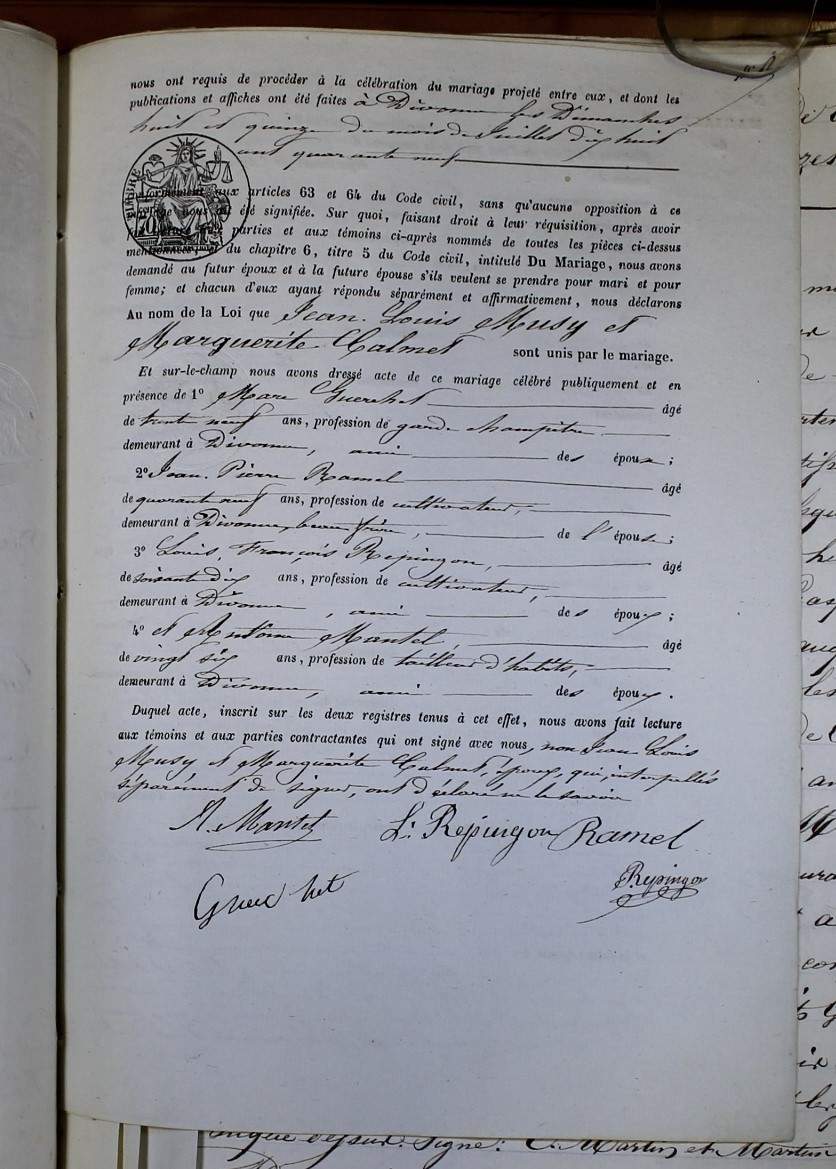 nous ont requis de procéder à la célébration du mariage projeté entre eux, et dont les
publications et affiches ont été faites à Divonne les Dimanches
huit et quinze du mois de Juillet dix huit
cent quarante neuf
conformément aux articles 63 et 64 du Code civil, sans qu'aucune opposition à ce
mariage nous ait été signifiée. Sur quoi, faisant droit à leur réquisition, après avoir
parties et aux témoins ci-après nommés de toutes les pièces ci-dessus
mentionnées, et du chapitre 6, titre 5 du Code civil, intitulé Du Mariage, nous avons
demandé au futur époux et à la future épouse s'ils veulent se prendre pour mari et pour
femme; et chacun d'eux ayant répondu séparément et affirmativement, nous déclarons
Au nom de la Loi que Jean Louis Musy et
Marguerite Calmet sont unis par le mariage.
Et sur-le-champ nous avons dressé acte de ce mariage célébré publiquement et en
présence de 1° Marc Guerchet âgé
de trente neuf ans, profession de garde champêtre
demeurant à Divonne, ami des époux;
2° Jean Pierre Ramel âgé
de quarante neuf ans, profession de cultivateur,
demeurant à Divonne, beau frère, de l'épouse;
3° Louis François Repingon, âgé
de soixante dix ans, profession de cultivateur,
demeurant à Divonne, ami des époux;
4° et Antoine Mantel, âgé
de vingt six ans, profession de tailleur d'habits,
demeurant à Divonne, ami des époux.
Duquel acte, inscrit sur les deux registres tenus à cet effet, nous avons fait lecture
aux témoins et aux parties contractantes qui ont signé avec nous, non Jean Louis
Musy et Marguerite Calmet, époux, qui, interpellés
séparément de signer, ont déclaré ne le savoir
A. Mantel L: Repingon Ramel
Guerchet Repingon